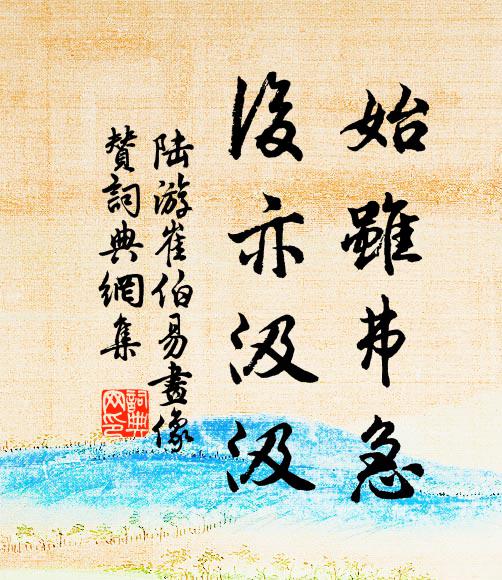 始雖弗急
後亦汲汲
陸游崔伯易畫像
贊詞典網集
詞典
网印